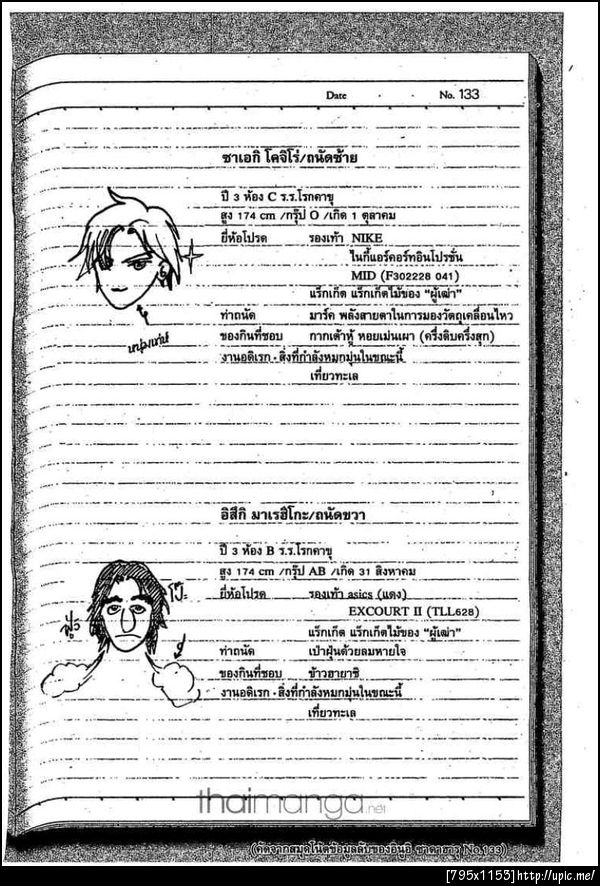 Date . . No. 133
ซาเอกิ โคจิโร่/ถนัดซ้าย
ปี 3 ห้อง C ร.ร.โรกคาขุ
สูง 174 cm /กรุ๊ป O /เกิด 1 ตุลาคม
ยี่ห้อโปรด รองเท้า NIKE
ไนกี้แอร์คอร์ทอินโปรชั่น
MID (F302228 041)
แร็กเก็ต แร็กเก็ตไม้ของ “ผู้เฒ่า”
ท่าถนัด มาร์ค พลังสายตาในการมองวัตถุเคลื่อนไหว
ของกินที่ชอบ กากเต้าหู้ หอยเม่นเผา (ครึ่งดิบครึ่งสุก)
งานอดิเรก - สิ่งที่กำลังหมกมุ่นในขณะนี้
เที่ยวทะเล
อิสึกิ มาเรฮิโกะ/ถนัดขวา
ปี 3 ห้อง B ร.ร.โรกคาขุ
สูง 174 cm /กรุ๊ป AB /เกิด 31 สิงหาคม
ยี่ห้อโปรด รองเท้า asics (แดง)
EXCOURT II (TLL628)
แร็กเก็ต แร็กเก็ตไม้ของ “ผู้เฒ่า”
ท่าถนัด เป่าฝุ่นด้วยลมหายใจ
ของกินที่ชอบ ข้าวฮายาชิ
งานอดิเรก - สิ่งที่กำลังหมกมุ่นในขณะนี้
เที่ยวทะเล
thaimanga.net
(คัดจากสมุดโน้ตข้อมูลลับของอินุอิ ซาดาฮารุ No.133)
[795x1153]http://upic.me/